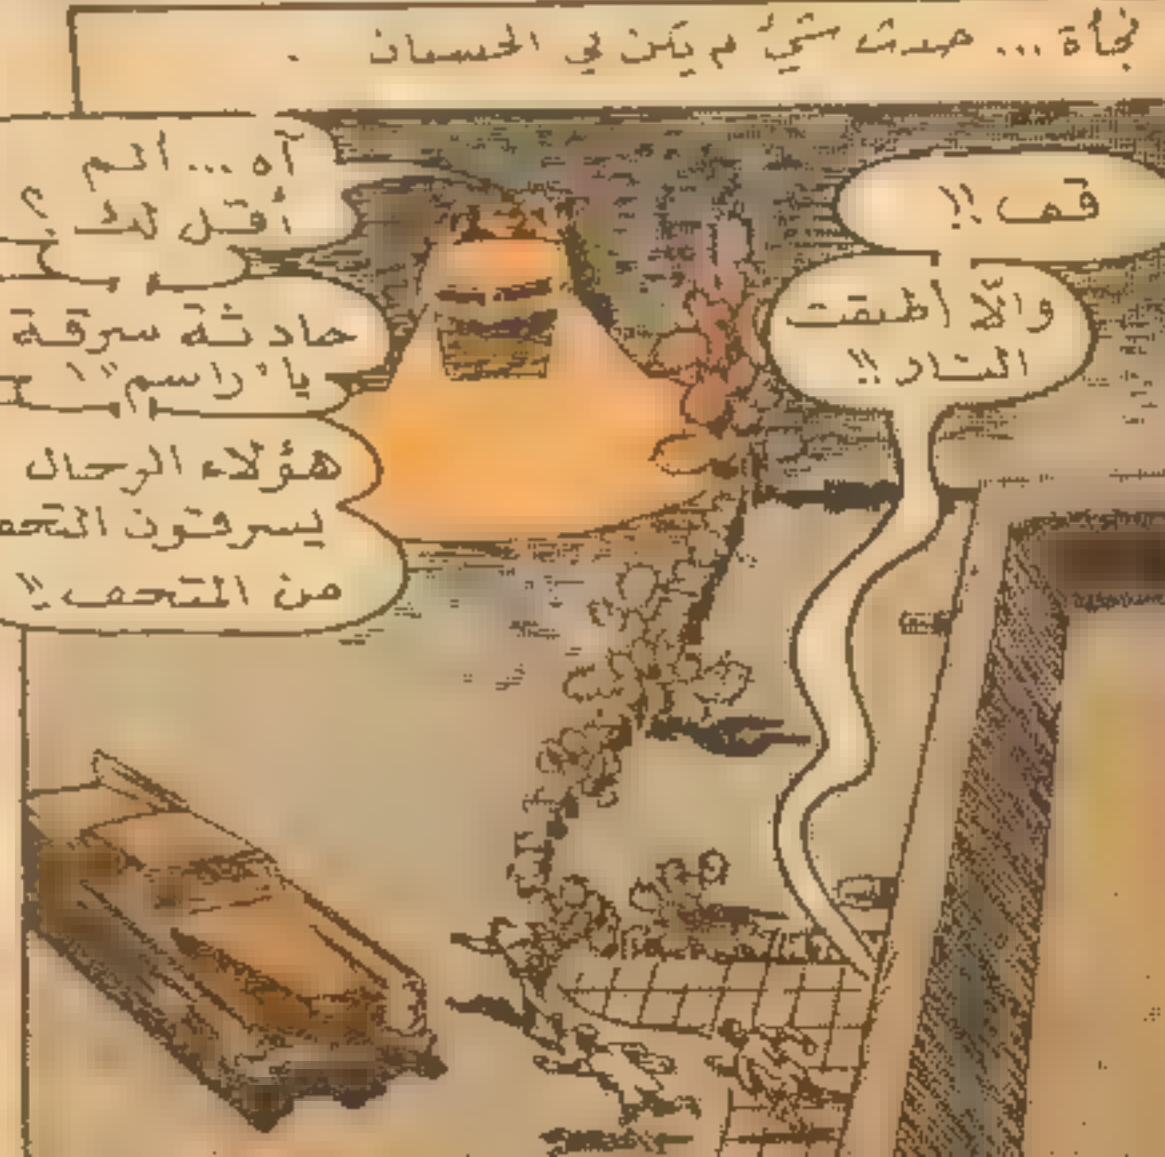 فجأة ... حدث شيء لم يكن في الحسبان .
قف !!
وإلّا أطلقت
النار !!
آه ... ألم
أقل لك ؟
حادثة سرقة
يا "راسم" !!
هؤلاء الرجال
يسرقون التحف
من المتحف !!